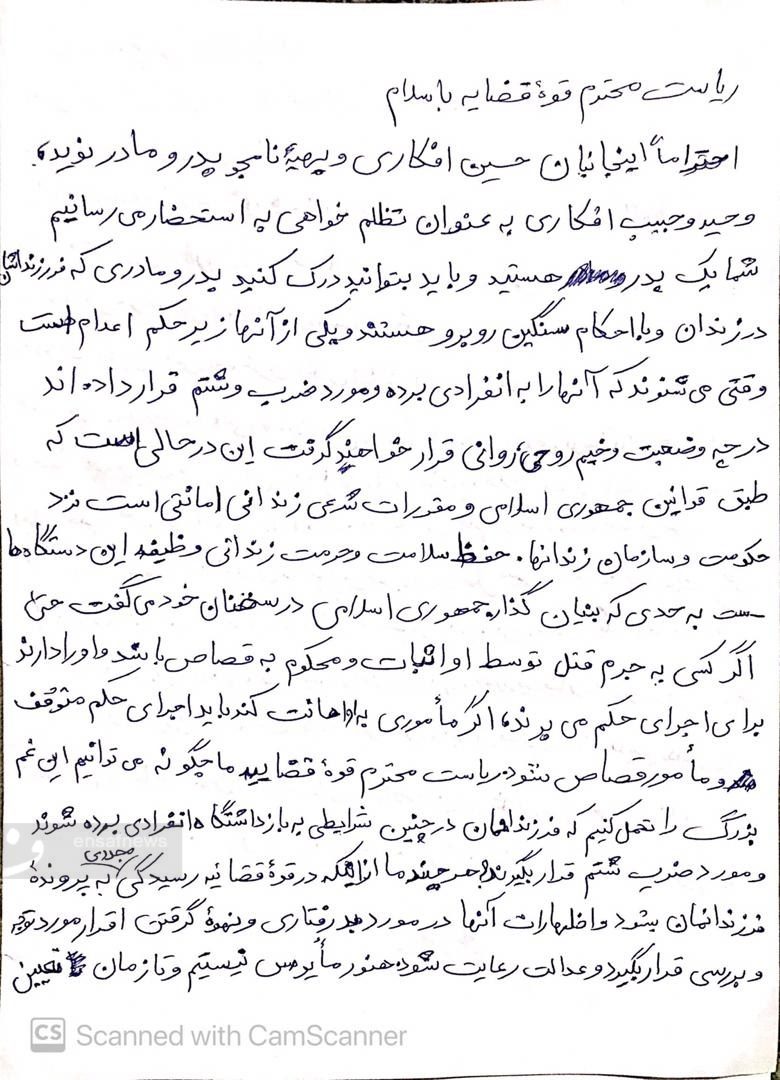 ریاست محترم قوهٔ قضایه باسلام
احتراماً اینجانبان حسین افکاری و بهیهٔ نامجو پدر و مادر نوید،
وحید و حبیب افکاری به عنوان تظلم خواهی به استحضار می رسانیم
شما یک پدر هستید و باید بتوانید درک کنید پدر و مادری که فرزندانشان
در زندان و با احکام سنگین روبرو هستند و یکی از آنها زیر حکم اعدام است
وقتی می شنوند که آنها را به انفرادی برده و مورد ضرب و شتم قرار داده اند
در چه وضعیت وخیم روحی، روانی قرار خواهند گرفت این در حالی است که
طبق قوانین جمهوری اسلامی و مقررات شرعی زندانی امانتی است نزد
حکومت و سازمان زندانها. حفظ سلامت و حرمت زندانی وظیفه این دستگاه ها
ست به حدی که بنیان گذار جمهوری اسلامی در سخنان خود می گفت حتی
اگر کسی به جرم قتل توسط او اثبات و محکوم به قصاص باشد و او را دارند
برای اجرای حکم می برند، اگر مأموری به او اهانت کند باید اجرای حکم متوقف
و مأمور قصاص شود. ریاست محترم قوهٔ قضاییه ما چگونه می توانیم این غم
بزرگ را تحمل کنیم که فرزندانمان در چنین شرایطی به بازداشتگاه انفرادی برده شوند
و مورد ضرب شتم قرار بگیرند؟ هر چند ما از اینکه در قوهٔ قضائیه رسیدگی مجددی به پروندهٔ
فرزندانمان بشود و اظهارات آنها در مورد بدرفتاری و نحوهٔ گرفتن اقرار مورد توجه
و بررسی قرار بگیرد و عدالت رعایت شود هنوز مأیوس نیستیم و تا زمان تعیین
ensafnews
CS Scanned with CamScanner